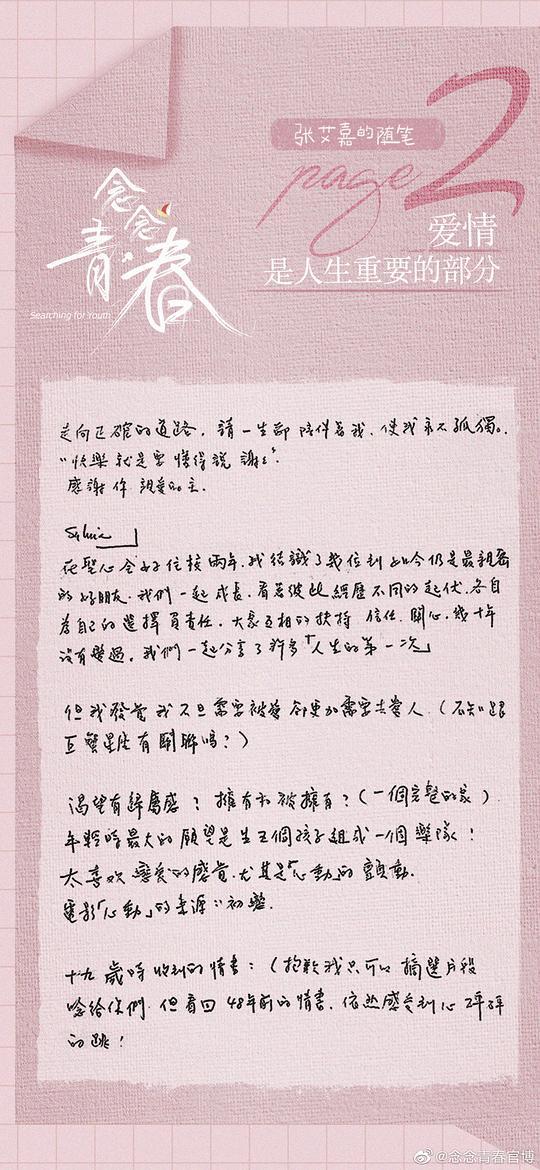 张艾嘉的随笔
page 2
爱情
是人生重要的部分
念念
青春
Searching for Youth
走向正確的道路，請一生都陪伴著我，使我永不孤獨。
"快樂就是要懂得說謝謝"
感謝你 親愛的主.
Sylvia
在聖心女子住校兩年，我結識了幾位到如今仍是最親密
的好朋友. 我們一起成長，看著彼此經歷不同的起伏，各自
為自己的選擇負責任. 大家互相的扶持 信任 關心，幾十年
沒有變過，我們一起分享了許多「人生的第一次」
但我發覺我不但需要被愛 卻更加需要去愛人（不知跟
巨蟹星座有關聯嗎？）
渴望有歸屬感？擁有和被擁有？(一個完整的家)
年輕時最大的願望是生五個孩子組成一個樂隊！
太喜歡戀愛的感覺，尤其是「心動」的顫動.
電影「心動」的來源:初戀.
十九歲時收到的情書：(抱歉我只可以摘選片段
唸給你們. 但看回48年前的情書，依然感受到心砰砰
的跳！
@念念青春官博